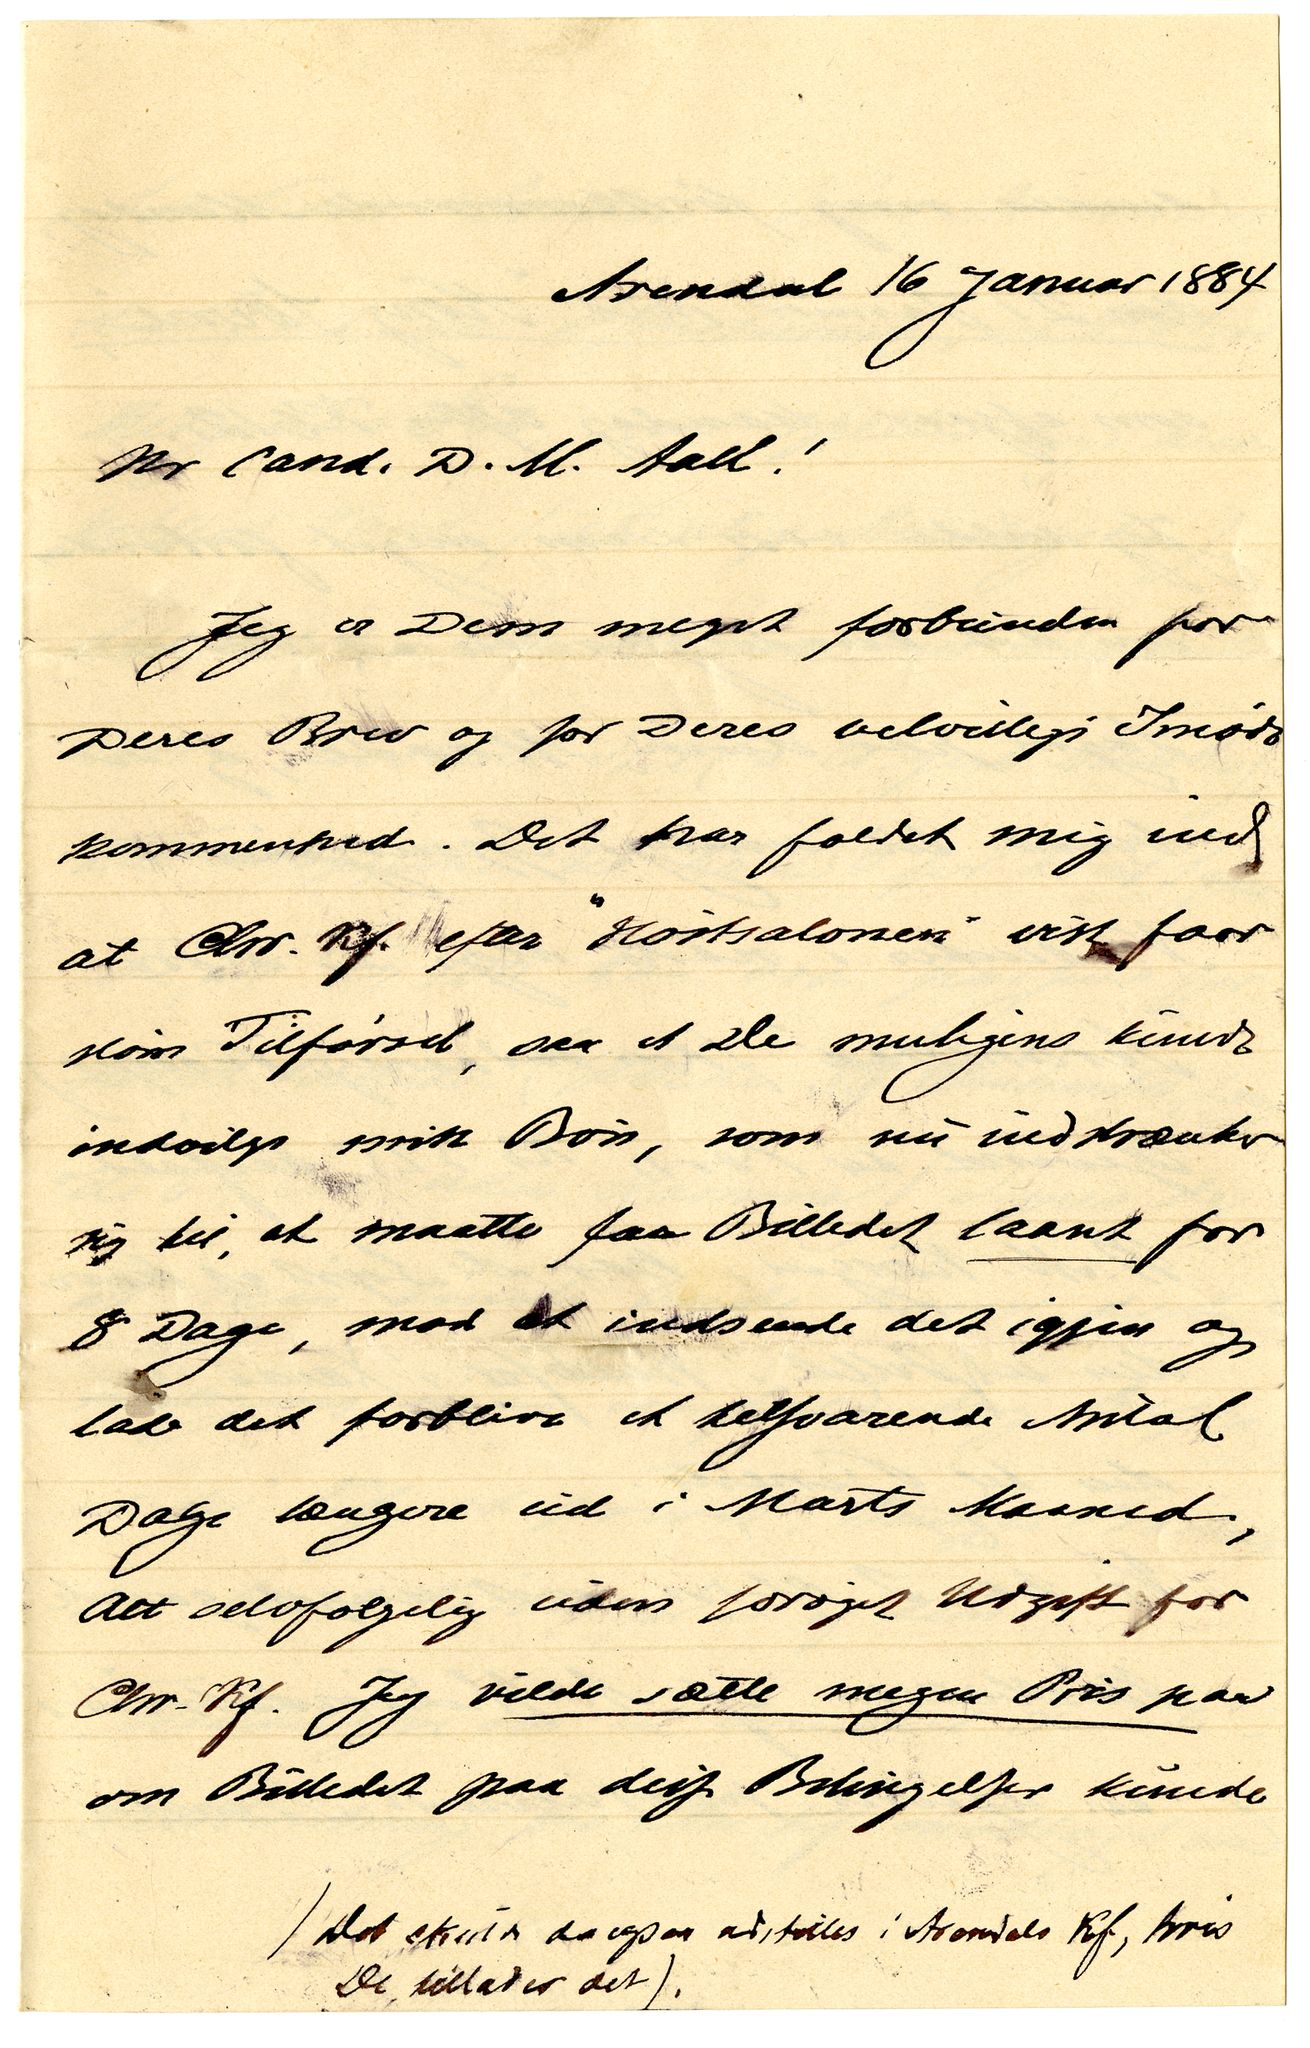 Arendal 16 Januar 1884
Hr Cand. D. M. Aall!
Jeg er Dem meget forbunden for
Deres Brev og for Deres velvillige Imøde
kommenhed. Det har faldet mig ind,
at Chr. Kf. efter "Høstsalonen" vist faar
stor Tilførsel, saa at De muligens kunde
indvilge mitt Bøn, som nu indskrænker
sig til, at maatte faa Billedet laant for
8 Dage, mod at indsende det igjen og
lade det forblive et tilsvarende Antal
Dage længere ud i Marts Maaned,
Alt selvfølgelig uden forøget Udgift for
Chr. Kf. Jeg vilde sætte megen Pris paa
om Billedet paa disse Betingelser kunde
(Det skulde da ogsaa udstilles i Arendals Kf, hvis
De tillader det).